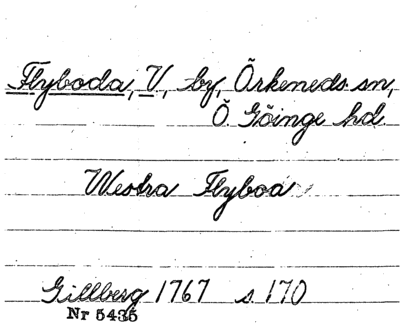 Flyboda, V, by, Örkeneds sn,
Ö. Göinge hd
Westra Flyboa
Gillberg 1767 s 170
Nr 5435